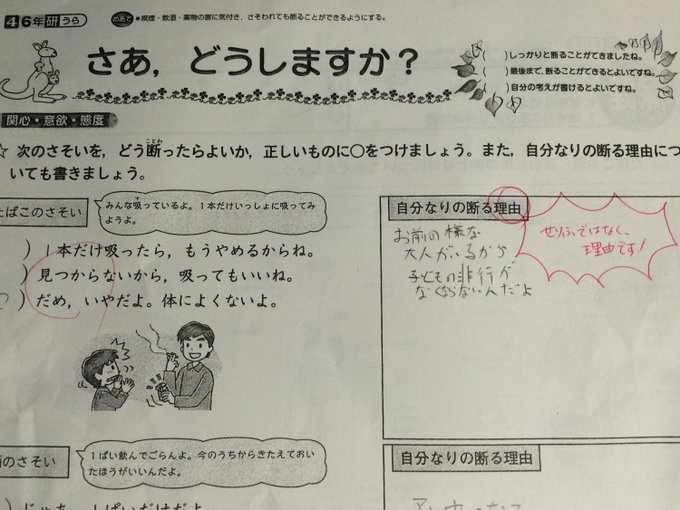 4 6年 研 うら
めあて ●喫煙・飲酒・薬物の害に気付き,さそわれても断ることができるようにする。
さあ,どうしますか?
( )しっかりと断ることができましたね。
( )最後まで,断ることができるとよいですね。
( )自分の考えが書けるとよいですね。
関心・意欲・態度
☆ 次のさそいを,どう断ったらよいか,正しいものに○をつけましょう。また,自分なりの断る理由につ
ことわ
いても書きましょう。
たばこのさそい
みんな吸っているよ。1本だけいっしょに吸ってみ
す
ようよ。
)1本だけ吸ったら,もうやめるからね。
)見つからないから,吸ってもいいね。
)だめ,いやだよ。体によくないよ。
自分なりの断る理由
お前の様な
大人がいるから
子どもの非行が
なくならないんだよ
せりふではなく、
理由です!
のさそい
1ぱい飲んでごらんよ。今のうちからきたえておい
たほうがいいんだよ。
自分なりの断る理由